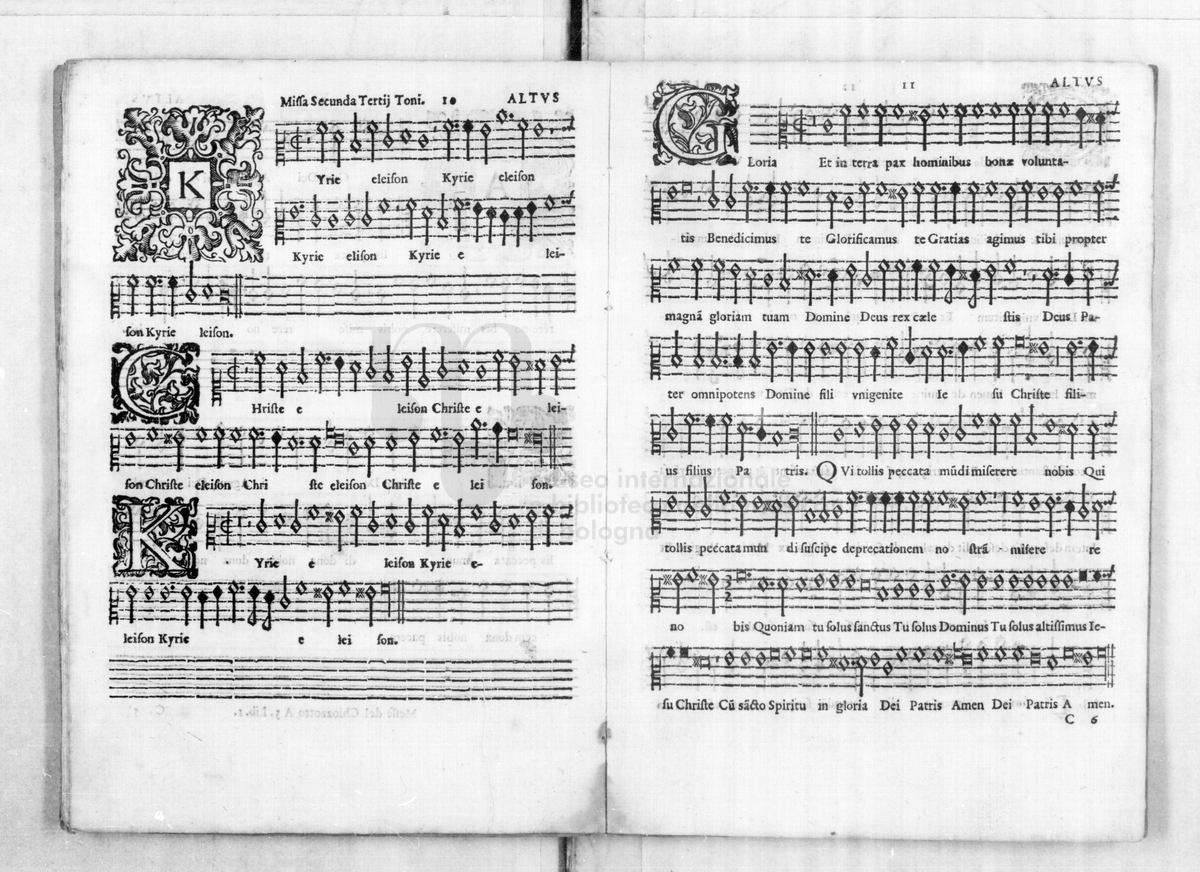 Missa Secunda Tertij Toni. 10 ALTVS
K
Yrie eleison Kyrie eleison
Kyrie elison Kyrie e lei-
son Kyrie leison.
C
Hriste e leison Christe e lei-
son Christe eleison Chri ste eleison Christe e lei son.
K
Yrie e leison Kyrie e-
leison Kyrie e lei son.
11 ALTVS
G
Loria Et in terra pax hominibus bonæ volunta-
tis Benedicimus te Glorificamus te Gratias agimus tibi propter
magnã gloriam tuam Domine Deus rex cæle stis Deus Pa-
ter omnipotens Domine fili vnigenite Ie su Christe fili-
us filius Pa tris. QVi tollis peccata mũdi miserere nobis Qui
tollis peccata mun di suscipe deprecationem no strã misere re
no bis Quoniam tu solus sanctus Tu solus Dominus Tu solus altissimus Ie-
su Christe Cũ sãcto Spiritu in gloria Dei Patris Amen Dei Patris A men.
C 6
museo internazionale
e biblioteca
bologna